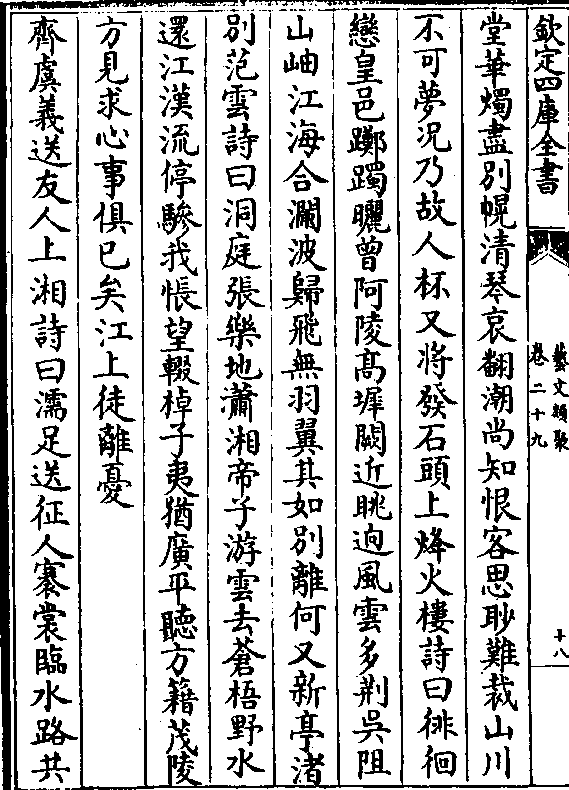 欽定四庫全書
藝文類聚
卷二十九
十八
堂華燭盡別幌清琴哀翻潮尚知恨客思眇難裁山川
不可夢况乃故人杯又將發石頭上烽火樓詩曰徘徊
戀皇邑躑躅曬曾阿陵髙墀闕近眺逈風雲多荆吳阻
山岫江海合瀾波歸飛無羽翼其如別離何又新亭渚
別范雲詩曰洞庭張樂地瀟湘帝子游雲去蒼梧野水
還江漢流停驂我悵望輟棹子夷猶廣平聽方籍茂陵
方見求心事俱已矣江上徒離憂
齊虞羲送友人上湘詩曰濡足送征人褰裳臨水路共